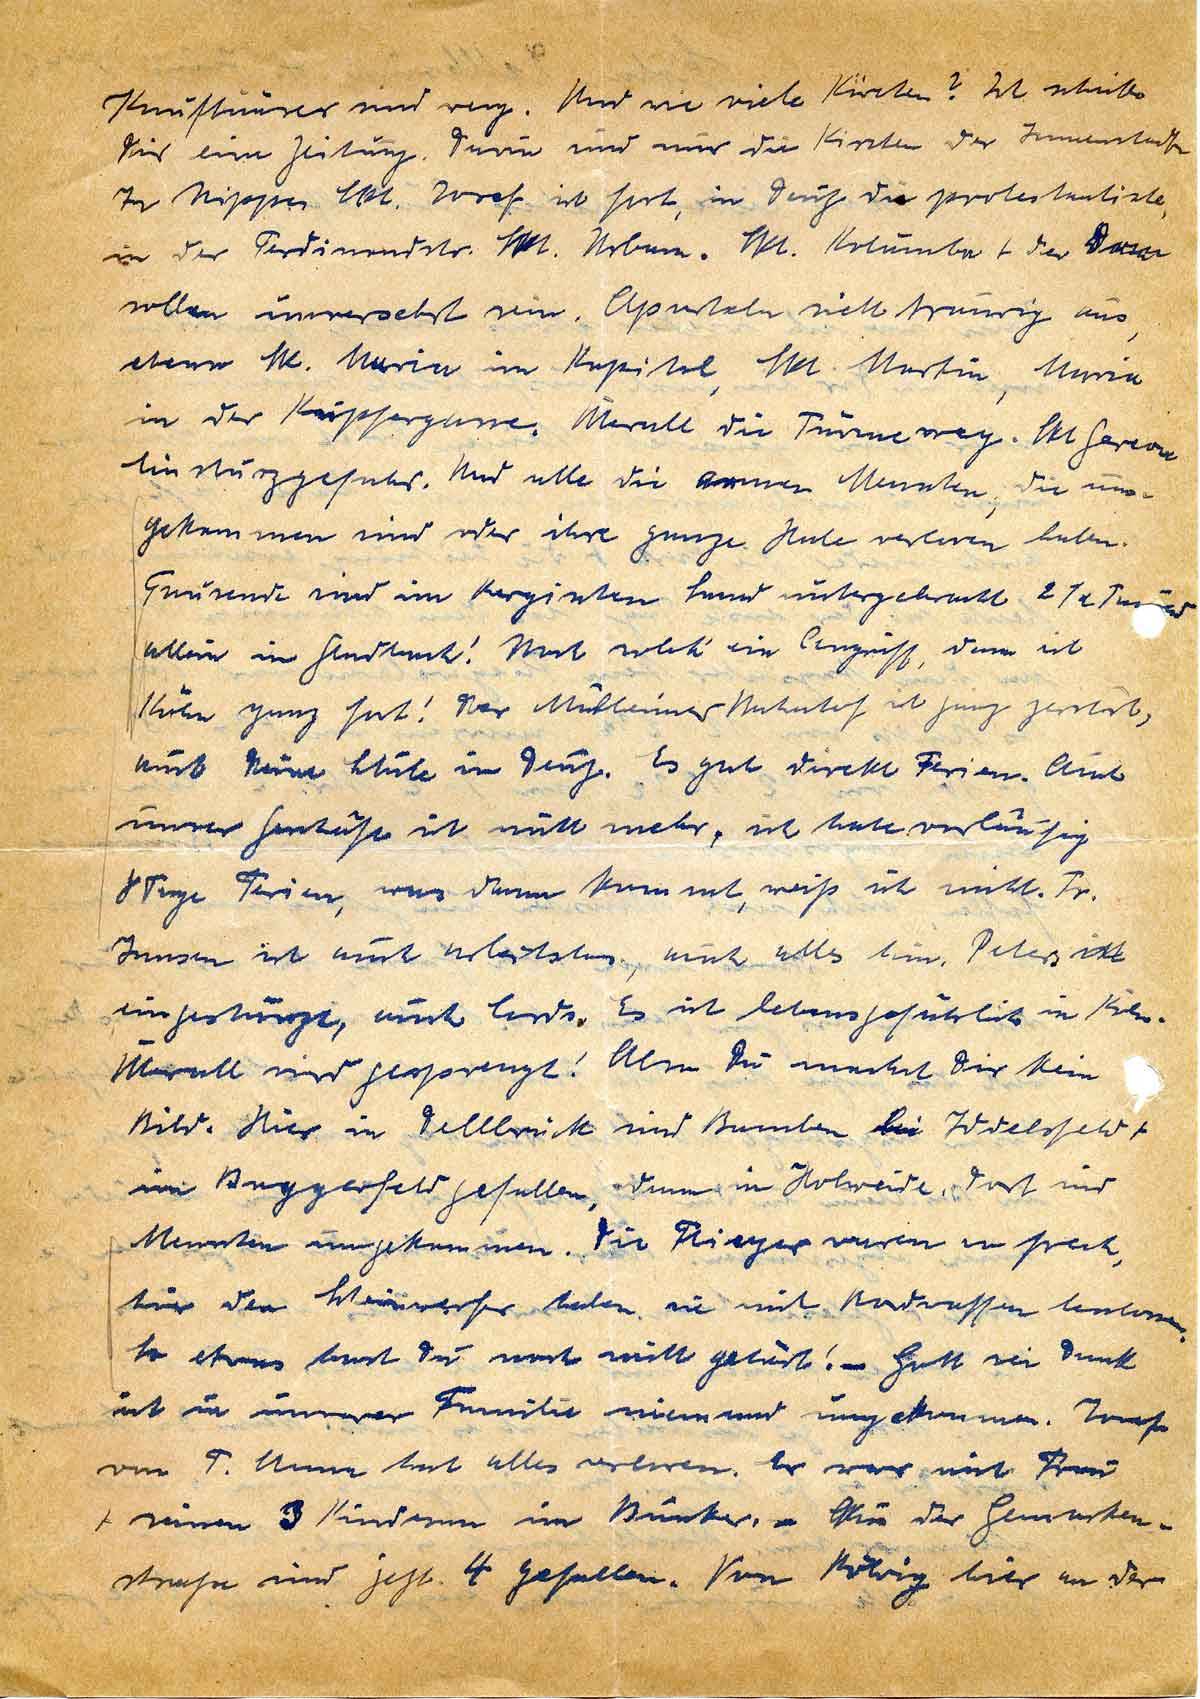 Kaufhäuser sind weg. Und wie viele Kirchen? Ich schicke
Dir eine Zeitung. Darin sind nur die Kirchen der Innenstadt.
In Nippes Skt. Josef ist fort, in Deuz die protestantische,
in der Ferdinandstr. Skt. Urban. Skt. Kolumba + der Dom
sollen unversehrt sein. Aposteln sieht traurig aus,
ebenso Skt. Maria im Kapitol, Skt Martin, Maria
in der Kupfergasse. Überall die Türme weg. Skt Gereon
Einsturzgefahr. Und alle die armen Menschen, die um-
gekommen sind oder ihre ganze Habe verloren haben.
Tausende sind im Bergischen Land untergebracht 2 1/2 Tausend
allein in Gladbach! Noch solch' ein Angriff, dann ist
Köln ganz fort! Der Mülheimer Bahnhof ist ganz zerstört,
auch Deine Schule in Deuz. Es gab direkt Ferien. Auch
unser Geschäft ist nicht mehr, ich habe vorläufig
8 Tage Ferien, was dann kommt, weiß ich nicht. Fr.
Jansen ist auch arbeitslos, auch alles hin. Peters ist
eingestürzt, auch Cords. Es ist lebensgefährlich in Köln.
Überall wird gesprengt! Also Du machst Dir kein
Bild. Hier in Dellbrück sind Bomben bei Iddelsfeld +
im Baggerfeld gefallen, dann in Holweide. Dort sind
Menschen umgekommen. Die Flieger waren so frech,
hier den Scheinwerfer haben sie mit Bordwaffen beschossen.
So etwas hast Du noch nicht gehört! – Gott sei Dank
ist in unserer Familie niemand umgekommen. Josef
von T. Anna hat alles verloren. Er war mit Frau
+ seinen 3 Kindern im Bunker. – Aus der Gemarken-
strasse sind jetzt 4 gefallen. Von hier an der